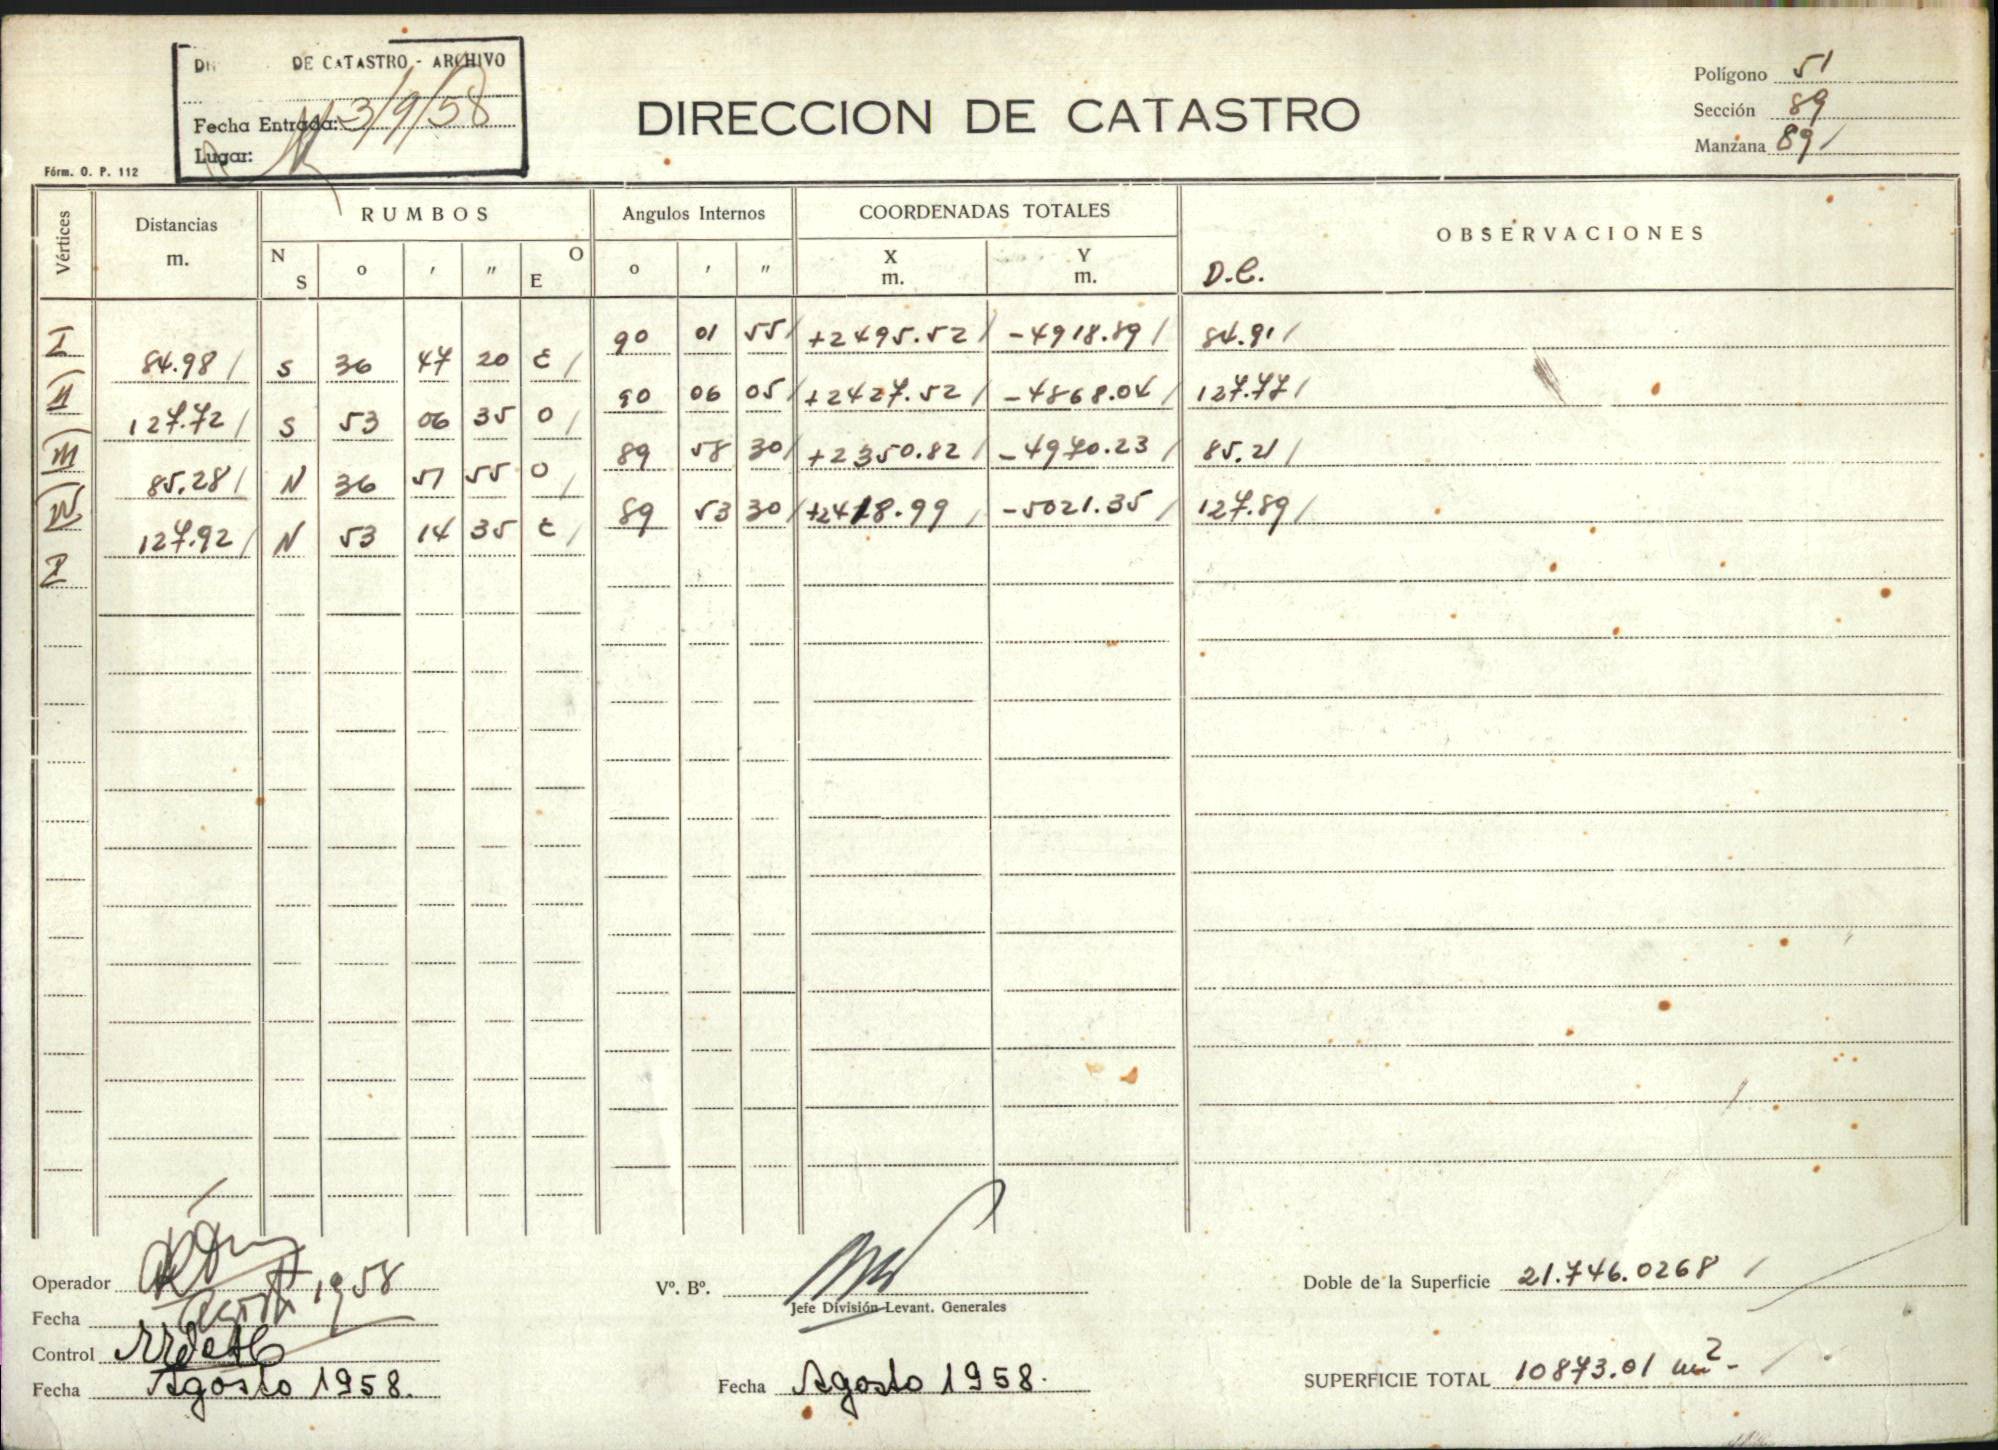 DE CATASTRO - ARCHIVO
Fecha Entrada: 3/9/58
Lugar:
Fórm. O. P. 112
DIRECCION DE CATASTRO
Polígono 51
Sección 89
Manzana 89 /
Vértices Distancias m. RUMBOS Angulos Internos COORDENADAS TOTALES OBSERVACIONES
N S o ' " O E o ' " X m. Y m. D.C.
I 90 01 55 / +2495.52 / -4918.89 / 84.91 /
84.98 / S 36 47 20 E /
II 90 06 05 / +2427.52 / -4868.04 / 127.77 /
127.72 / S 53 06 35 O /
III 89 58 30 / +2350.82 / -4970.23 / 85.21 /
85.28 / N 36 51 55 O /
IV 89 53 30 / +2418.99 / -5021.35 / 127.89 /
127.92 / N 53 14 35 E /
I
Operador
Fecha Agosto 1958
Control
Fecha Agosto 1958.
Vº. Bº.
Jefe División Levant. Generales
Fecha Agosto 1958.
Doble de la Superficie 21.746.0268 /
SUPERFICIE TOTAL 10873.01 m2.- /